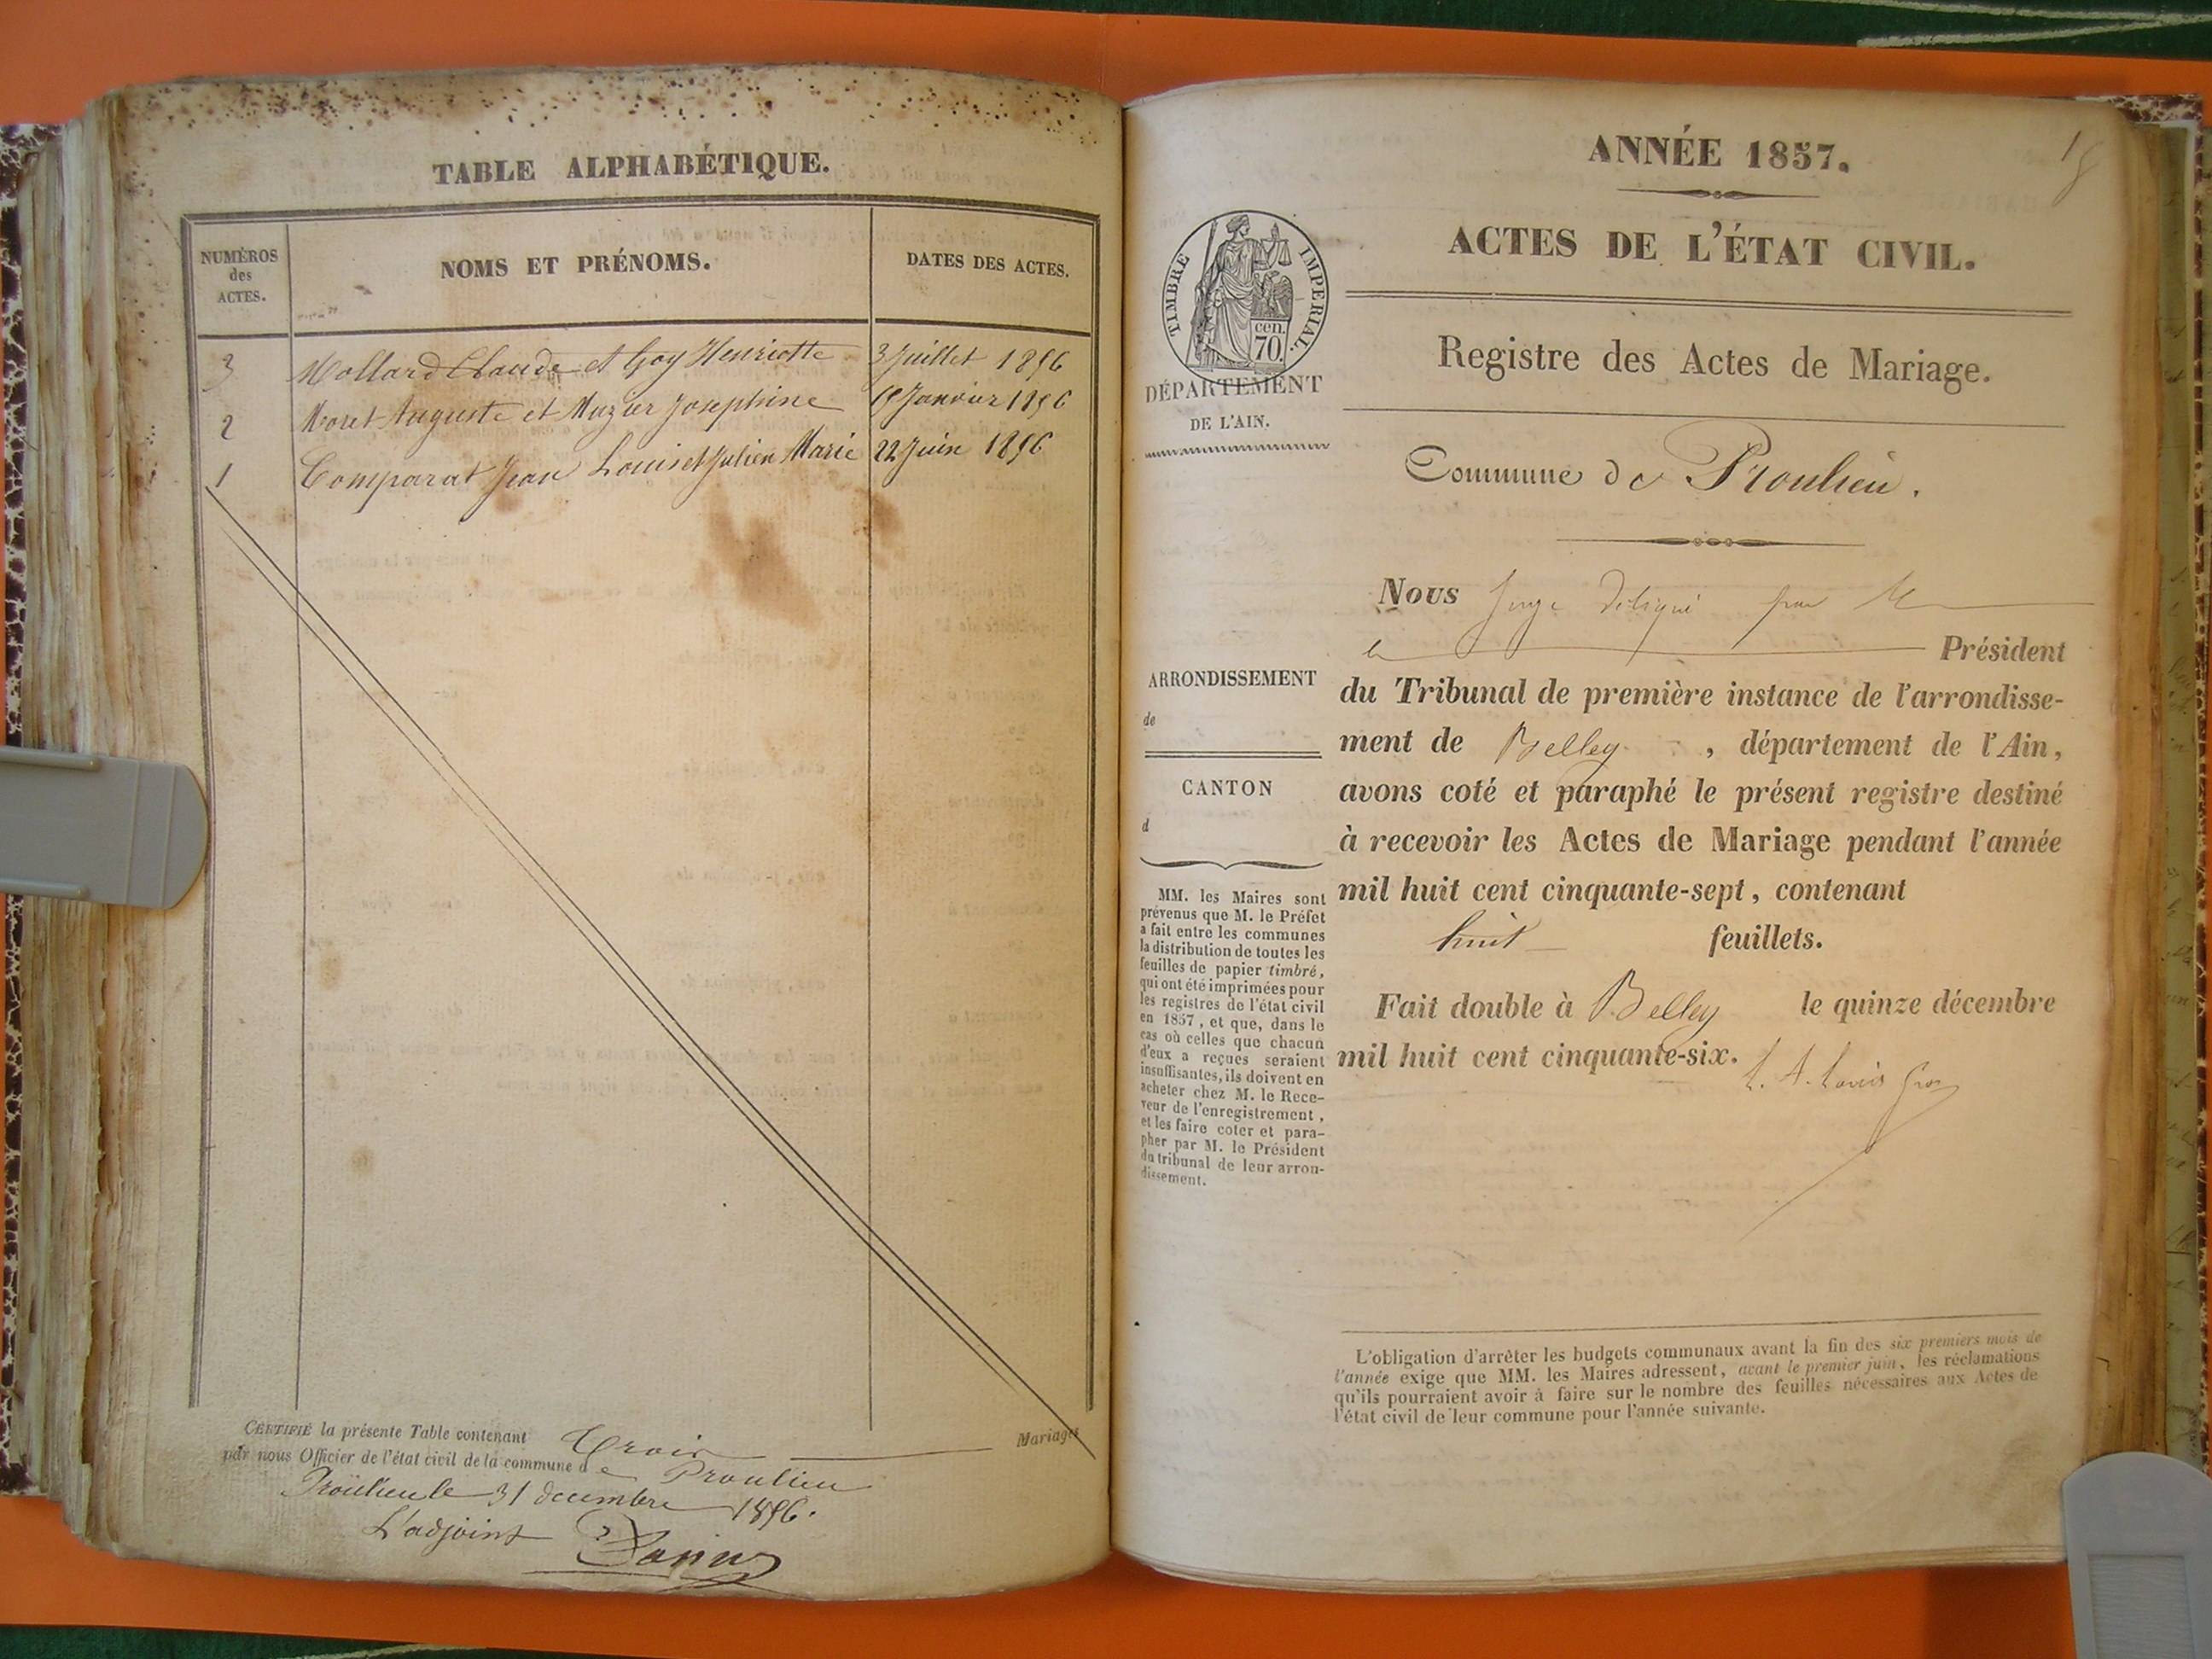 TABLE ALPHABÉTIQUE.
NUMÉROS
des
ACTES.
NOMS ET PRÉNOMS.
DATES DES ACTES.
3 Mollard Claude et Goy Henriette 3 Juillet 1856
2 Moret Auguste et Muzier Josephine Janvier 1856
1 Comparat Jean Louis et Julien Marie 22 Juin 1856
CERTIFIÉ la présente Table contenant Trois Mariages
par nous Officier de l'état civil de la commune de Proulieu
Proulieu le 31 decembre 1856.
L'adjoint
ANNÉE 1857.
18
ACTES DE L'ÉTAT CIVIL.
TIMBRE IMPERIAL.
cen.
70.
DÉPARTEMENT
DE L'AIN.
Registre des Actes de Mariage.
Commune de Proulieu.
Nous Juge délégué par M
le Président
du Tribunal de première instance de l'arrondisse-
ment de Belley, département de l'Ain,
avons coté et paraphé le présent registre destiné
à recevoir les Actes de Mariage pendant l'année
mil huit cent cinquante-sept, contenant
huit feuillets.
Fait double à Belley le quinze décembre
mil huit cent cinquante-six.
ARRONDISSEMENT
de
CANTON
d
MM. les Maires sont
prévenus que M. le Préfet
a fait entre les communes
la distribution de toutes les
feuilles de papier timbré,
qui ont été imprimées pour
les registres de l'état civil
en 1857, et que, dans le
cas où celles que chacun
d'eux a reçues seraient
insuffisantes, ils doivent en
acheter chez M. le Rece-
veur de l'enregistrement,
et les faire coter et para-
pher par M. le Président
du tribunal de leur arron-
dissement.
L'obligation d'arrêter les budgets communaux avant la fin des six premiers mois de
l'année exige que MM. les Maires adressent, avant le premier juin, les réclamations
qu'ils pourraient avoir à faire sur le nombre des feuilles nécessaires aux Actes de
l'état civil de leur commune pour l'année suivante.